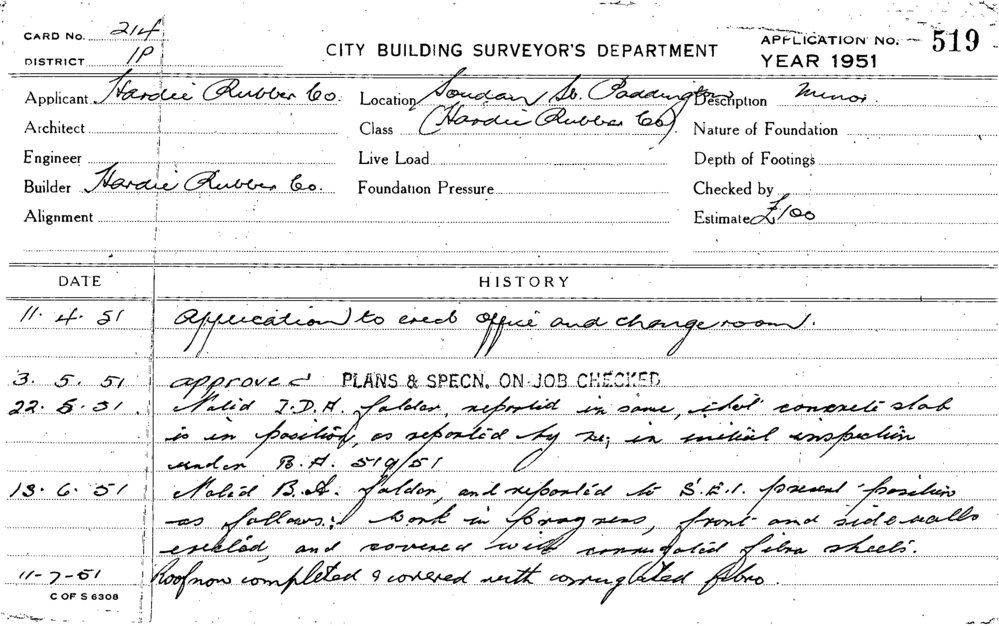 CARD No. 214
DISTRICT 1P
CITY BUILDING SURVEYOR'S DEPARTMENT
APPLICATION No. 519
YEAR 1951
Applicant Hardie Rubber Co. Location Soudan St. Paddington Description Minor.
Architect Class (Hardie Rubber Co) Nature of Foundation
Engineer Live Load Depth of Footings
Builder Hardie Rubber Co. Foundation Pressure Checked by
Alignment Estimate £100
DATE HISTORY
11. 4. 51 Application to erect office and change room.
3. 5. 51 approved PLANS & SPECN. ON JOB CHECKED
22. 5. 51. Noted I.D.A. folder, reported in same, that concrete slab
is in position, as reported by me, in initial inspection
under B.A. 519/51
13. 6. 51 Noted B.A. folder, and reported to S.E.I. present position
as follows: Work in progress, front and side walls
erected, and covered with corrugated fibro sheets.
11-7-51 Roof now completed & covered with corrugated fibro.
C OF S 6308